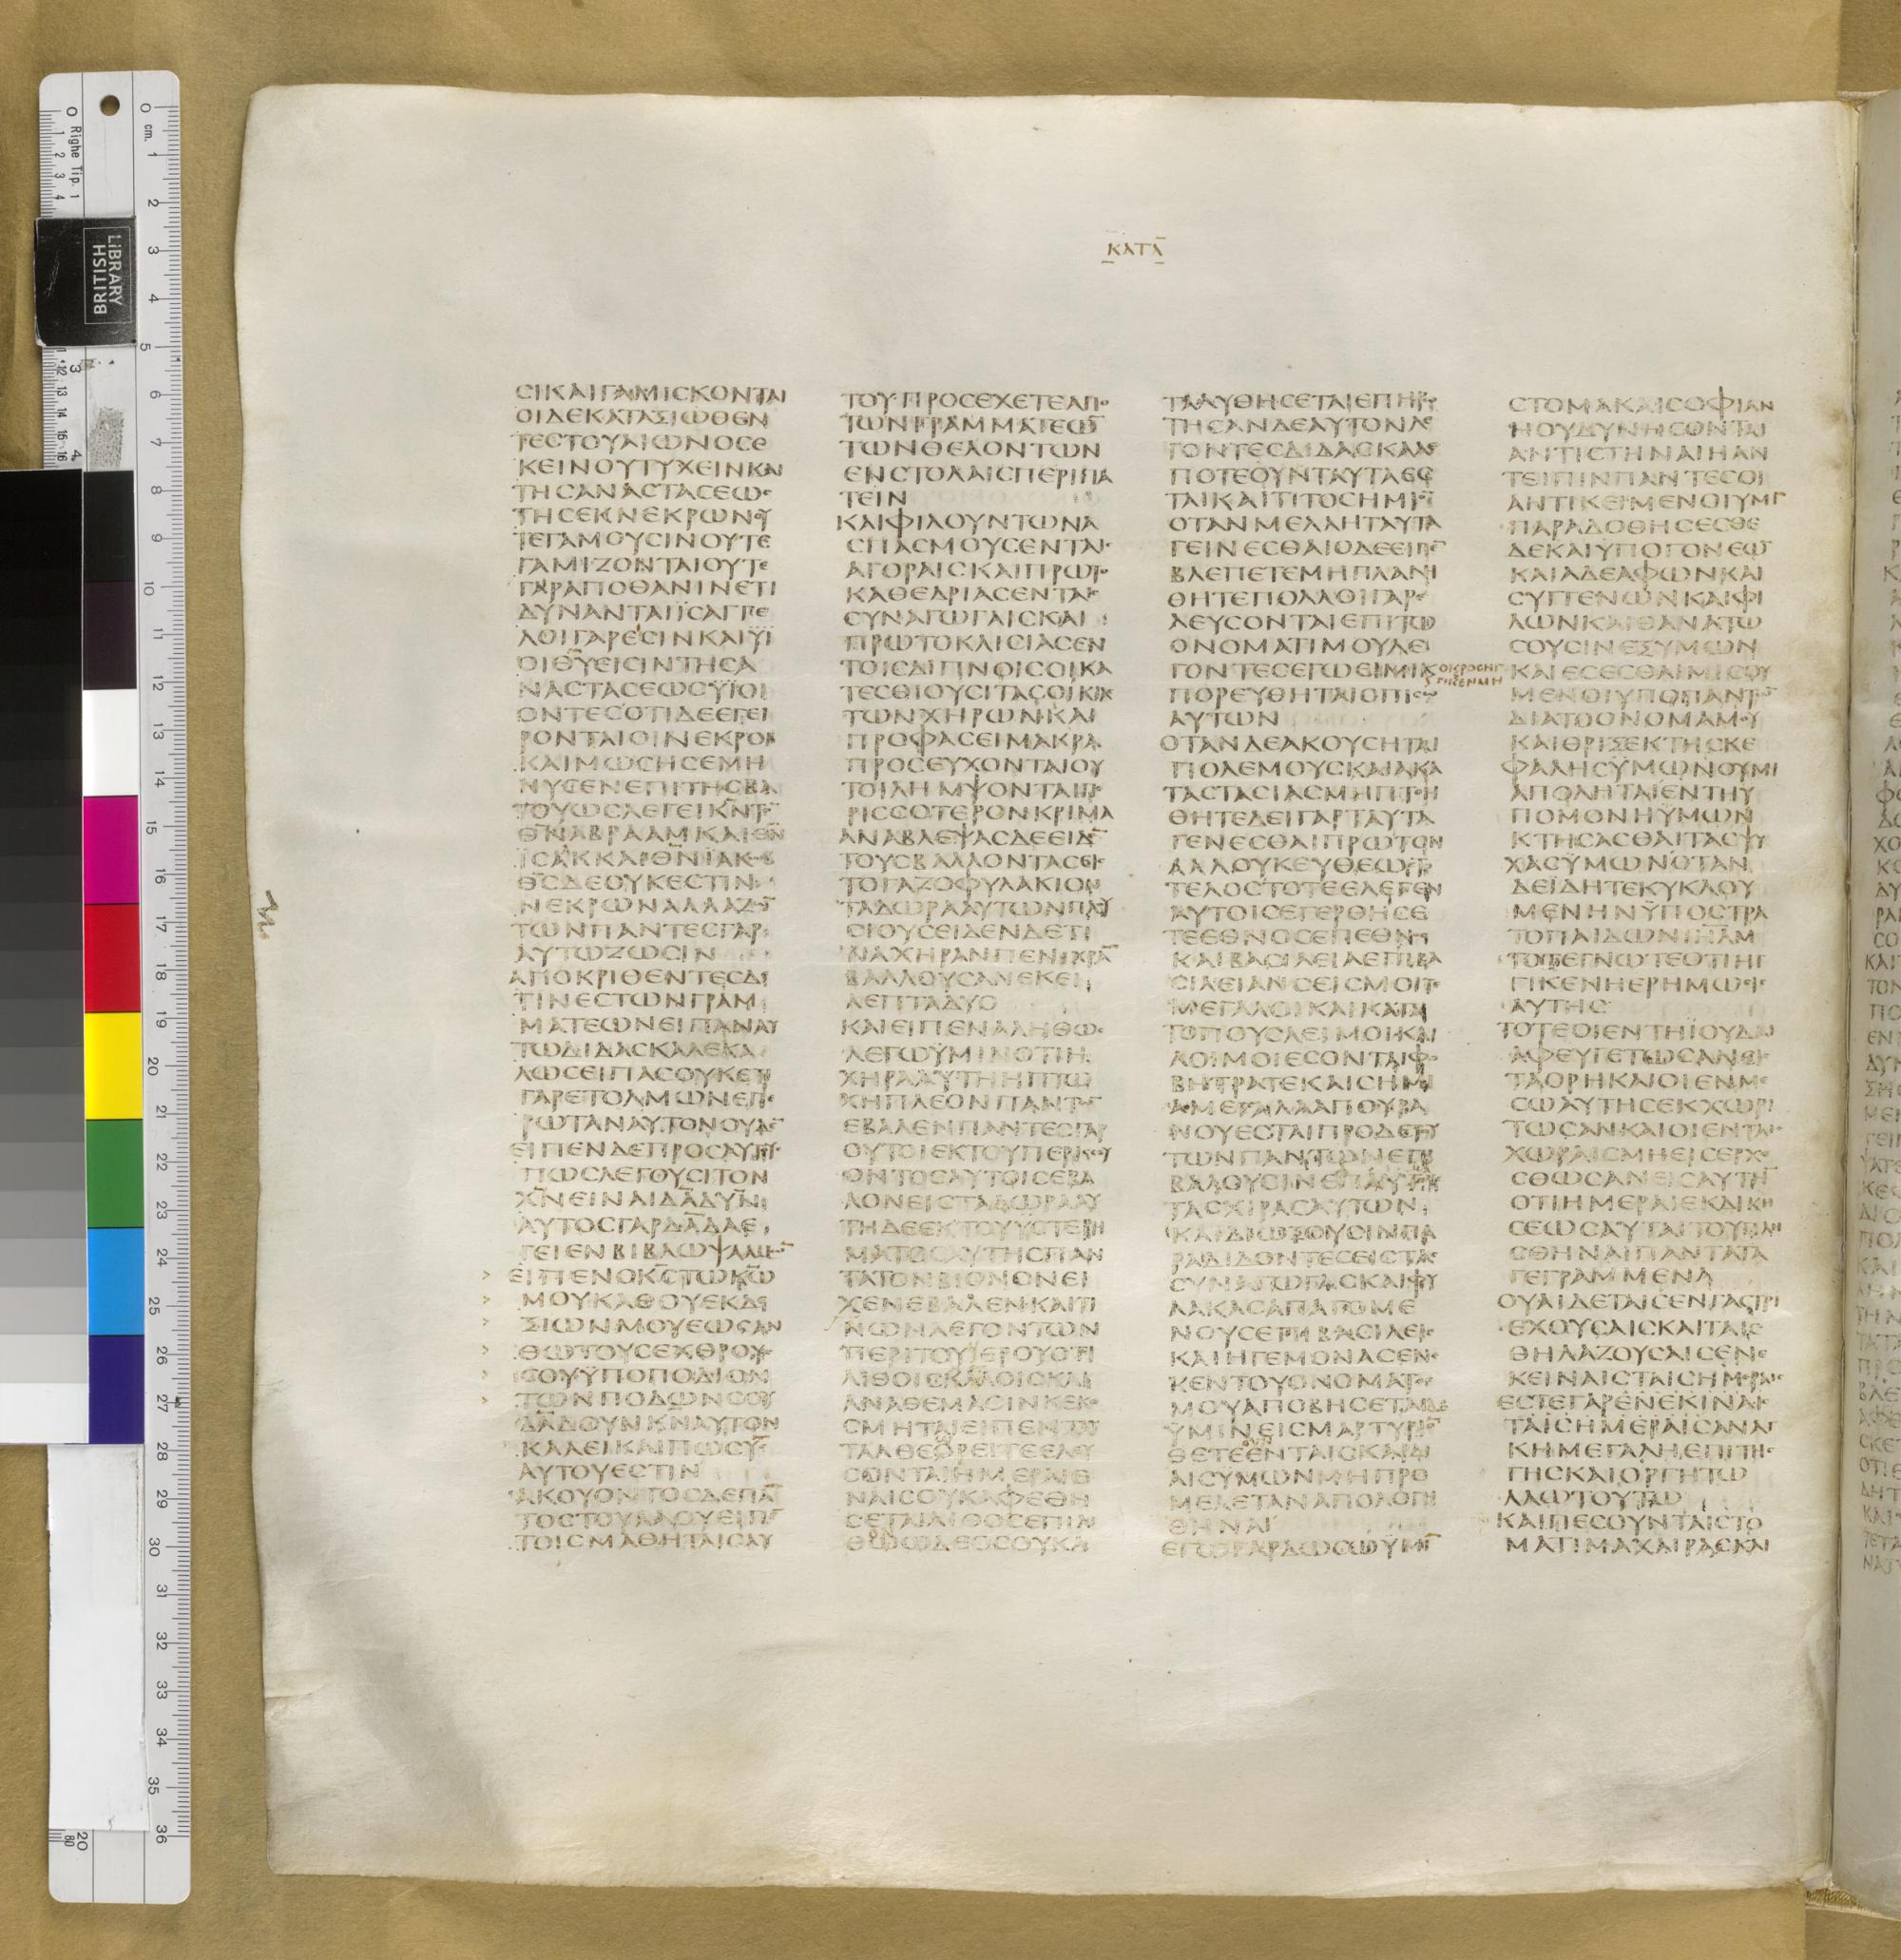 ΚΑΤΑ
ϹΙΚΑΙΓΑΜΙϹΚΟΝΤΑΙ
ΟΙΔΕΚΑΤΑΞΙΩΘΕΝ
ΤΕϹΤΟΥΑΙΩΝΟϹΕ
ΚΕΙΝΟΥΤΥΧΕΙΝΚΑΙ
ΤΗϹΑΝΑϹΤΑϹΕΩϹ
ΤΗϹΕΚΝΕΚΡΩΝΟΥ
ΤΕΓΑΜΟΥϹΙΝΟΥΤΕ
ΓΑΜΙΖΟΝΤΑΙΟΥΤΕ
ΓΑΡΑΠΟΘΑΝΙΝΕΤΙ
ΔΥΝΑΝΤΑΙΪϹΑΓΓΕ
ΛΟΙΓΑΡΕΙϹΙΝΚΑΙΫΙ
ΟΙΘ̅Υ̅ΕΙϹΙΝΤΗϹΑ
ΝΑϹΤΑϹΕΩϹΫΪΟΙ
ΟΝΤΕϹΟΤΙΔΕΕΓΕΙ
ΡΟΝΤΑΙΟΙΝΕΚΡΟΙ
ΚΑΙΜΩϹΗϹΕΜΗ
ΝΥϹΕΝΕΠΙΤΗϹΒΑ
ΤΟΥΩϹΛΕΓΕΙΚ̅Ν̅Τ̅Ο̅
Θ̅Ν̅ΑΒΡΑΑΜΚΑΙΘ̅Ν̅
ΪϹΑΚΚΑΙΘ̅Ν̅ΪΑΚΩΒ
Θ̅Ϲ̅ΔΕΟΥΚΕϹΤΙΝ
ΝΕΚΡΩΝΑΛΛΑΖΩ̅
ΤΩΝΠΑΝΤΕϹΓΑΡ
ΑΥΤΩΖΩϹΙΝ
ΑΠΟΚΡΙΘΕΝΤΕϹΔΕ
ΤΙΝΕϹΤΩΝΓΡΑΜ
ΜΑΤΕΩΝΕΙΠΑΝΑΥ
ΤΩΔΙΔΑϹΚΑΛΕΚΑ
ΛΩϹΕΙΠΑϹΟΥΚΕΤΙ
ΓΑΡΕΤΟΛΜΩΝΕΠΕ
ΡΩΤΑΝΑΥΤΟΝΟΥΔΕ̅
ΕΙΠΕΝΔΕΠΡΟϹΑΥΤΟΥϹ
ΠΩϹΛΕΓΟΥϹΙΤΟΝ
Χ̅Ν̅ΕΙΝΑΙΔ̅Α̅Δ̅Υ̅Ν̅
ΑΥΤΟϹΓΑΡΔ̅Α̅Δ̅ΛΕ
ΓΕΙΕΝΒΙΒΛΩΨΑΛΜΩ̅
ΕΙΠΕΝΟΚ̅Ϲ̅ΤΩΚ̅Ω̅
ΜΟΥΚΑΘΟΥΕΚΔΕ
ΞΙΩΝΜΟΥΕΩϹΑΝ
ΘΩΤΟΥϹΕΧΘΡΟΥϹ
ϹΟΥΫΠΟΠΟΔΙΟΝ
ΤΩΝΠΟΔΩΝϹΟΥ
Δ̅Α̅Δ̅ΟΥΝΚ̅Ν̅ΑΥΤΟΝ
ΚΑΛΕΙΚΑΙΠΩϹΥ̅Ϲ̅
ΑΥΤΟΥΕϹΤΙΝ
ΑΚΟΥΟΝΤΟϹΔΕΠΑ̅
ΤΟϹΤΟΥΛΑΟΥΕΙΠΕ̅
ΤΟΙϹΜΑΘΗΤΑΙϹΑΥ
ΤΟΥΠΡΟϹΕΧΕΤΕΑΠΟ
ΤΩΝΓΡΑΜΜΑΤΕΩ̅
ΤΩΝΘΕΛΟΝΤΩΝ
ΕΝϹΤΟΛΑΙϹΠΕΡΙΠΑ
ΤΕΙΝ
ΚΑΙΦΙΛΟΥΝΤΩΝΑ
ϹΠΑϹΜΟΥϹΕΝΤΑΙϹ
ΑΓΟΡΑΙϹΚΑΙΠΡΩΤΟ
ΚΑΘΕΔΡΙΑϹΕΝΤΑΙϹ
ϹΥΝΑΓΩΓΑΙϹΚΑΙ
ΠΡΩΤΟΚΛΙϹΙΑϹΕΝ
ΤΟΙϹΔΙΠΝΟΙϹΟΙΚΑ
ΤΕϹΘΙΟΥϹΙΤΑϹΟΙΚΙΑϹ
ΤΩΝΧΗΡΩΝΚΑΙ
ΠΡΟΦΑϹΕΙΜΑΚΡΑ
ΠΡΟϹΕΥΧΟΝΤΑΙΟΥ
ΤΟΙΛΗΜΨΟΝΤΑΙΠΕ
ΡΙϹϹΟΤΕΡΟΝΚΡΙΜΑ
ΑΝΑΒΛΕΨΑϹΔΕΕΙΔΕ̅
ΤΟΥϹΒΑΛΛΟΝΤΑϹΕΙϹ
ΤΟΓΑΖΟΦΥΛΑΚΙΟΝ
ΤΑΔΩΡΑΑΥΤΩΝΠΛΟΥ
ϹΙΟΥϹΕΙΔΕΝΔΕΤΙ
ΝΑΧΗΡΑΝΠΕΝΙΧΡΑ̅
ΒΑΛΛΟΥϹΑΝΕΚΕΙ
ΛΕΠΤΑΔΥΟ
ΚΑΙΕΙΠΕΝΑΛΗΘΩϹ
ΛΕΓΩΫΜΙΝΟΤΙΗ
ΧΗΡΑΑΥΤΗΗΠΤΩ
ΧΗΠΛΕΟΝΠΑΝΤΩ̅
ΕΒΑΛΕΝΠΑΝΤΕϹΓΑΡ
ΟΥΤΟΙΕΚΤΟΥΠΕΡΙϹϹΕΥ
ΟΝΤΟϹΑΥΤΟΙϹΕΒΑ
ΛΟΝΕΙϹΤΑΔΩΡΑΑΥ
ΤΗΔΕΕΚΤΟΥΥϹΤΕΡΗ
ΜΑΤΟϹΑΥΤΗϹΠΑΝ
ΤΑΤΟΝΒΙΟΝΟΝΕΙ
ΧΕΝΕΒΑΛΕΝΚΑΙΤΙ
ΝΩΝΛΕΓΟΝΤΩΝ
ΠΕΡΙΤΟΥΪΕΡΟΥΟΤΙ
ΛΙΘΟΙϹΚΑΛΟΙϹΚΑΙ
ΑΝΑΘΕΜΑϹΙΝΚΕΚΟ
ϹΜΗΤΑΙΕΙΠΕΝΤΑΥ
ΤΑΑΘΕΩΡΕΙΤΕΕΛΕΥ
ϹΟΝΤΑΙΗΜΕΡΑΙΕ
ΝΑΙϹΟΥΚΑΦΕΘΗ
ϹΕΤΑΙΛΙΘΟϹΕΠΙΛΙ
ΘΩΩΔΕΟϹΟΥΚΑ
ΤΑΛΥΘΗϹΕΤΑΙΕΠΗΡΩ
ΤΗϹΑΝΔΕΑΥΤΟΝΛΕ
ΓΟΝΤΕϹΔΙΔΑϹΚΑΛΕ
ΠΟΤΕΟΥΝΤΑΥΤΑΕϹ
ΤΑΙΚΑΙΤΙΤΟϹΗΜΙΟ̅
ΟΤΑΝΜΕΛΛΗΤΑΥΤΑ
ΓΕΙΝΕϹΘΑΙΟΔΕΕΙΠΕ̅
ΒΛΕΠΕΤΕΜΗΠΛΑΝΗ
ΘΗΤΕΠΟΛΛΟΙΓΑΡΕ
ΛΕΥϹΟΝΤΑΙΕΠΙΤΩ
ΟΝΟΜΑΤΙΜΟΥΛΕ
ΓΟΝΤΕϹΕΓΩΕΙΜΙΚΑΙ
ΟΚΑΙΡΟϹΗΓ
ΓΙΚΕΝΜΗ
ΠΟΡΕΥΘΗΤΑΙΟΠΙϹΩ
ΑΥΤΩΝ
ΟΤΑΝΔΕΑΚΟΥϹΗΤΑΙ
ΠΟΛΕΜΟΥϹΚΑΙΑΚΑ
ΤΑϹΤΑϹΙΑϹΜΗΠΤΟΗ
ΘΗΤΕΔΕΙΓΑΡΤΑΥΤΑ
ΓΕΝΕϹΘΑΙΠΡΩΤΟΝ
ΑΛΛΟΥΚΕΥΘΕΩϹΤΟ
ΤΕΛΟϹΤΟΤΕΕΛΕΓΕΝ
ΑΥΤΟΙϹΕΓΕΡΘΗϹΕ
ΤΕΕΘΝΟϹΕΠΕΘΝΟϹ
ΚΑΙΒΑϹΙΛΕΙΑΕΠΙΒΑ
ϹΙΛΕΙΑΝϹΕΙϹΜΟΙΤΕ
ΜΕΓΑΛΟΙΚΑΙΚΑΤΑ
ΤΟΠΟΥϹΛΕΙΜΟΙΚΑΙ
ΛΟΙΜΟΙΕϹΟΝΤΑΙΦΟ
ΒΗΤΡΑΤΕΚΑΙϹΗΜΙ
ΑΜΕΓΑΛΑΑΠΟΥΡΑ
ΝΟΥΕϹΤΑΙΠΡΟΔΕΤΟΥ
ΤΩΝΠΑΝΤΩΝΕΠΙ
ΒΑΛΟΥϹΙΝΕΠΑΥΤΟΥϹ
ΤΑϹΧΙΡΑϹΑΥΤΩΝ
ΚΑΙΔΙΩΞΟΥϹΙΝΠΑ
ΡΑΔΙΔΟΝΤΕϹΕΙϹΤΑϹ
ϹΥΝΑΓΩΓΑϹΚΑΙΦΥ
ΛΑΚΑϹΑΠΑΓΟΜΕ
ΝΟΥϹΕΠΙΒΑϹΙΛΕΙϹ
ΚΑΙΗΓΕΜΟΝΑϹΕΝΕ
ΚΕΝΤΟΥΟΝΟΜΑΤΟϹ
ΜΟΥΑΠΟΒΗϹΕΤΑΙΔΕ
ΫΜΙΝΕΙϹΜΑΡΤΥΡΙΟ̅
ΘΕΤΕΕΝΤΑΙϹΚΑΡΔΙ
ΑΙϹΫΜΩΝΜΗΠΡΟ
ΜΕΛΕΤΑΝΑΠΟΛΟΓΗ
ΘΗΝΑΙ
ΕΓΩΓΑΡΔΩϹΩΫΜΙ̅
ϹΤΟΜΑΚΑΙϹΟΦΙΑΝ
ΗΟΥΔΥΝΗϹΟΝΤΑΙ
ΑΝΤΙϹΤΗΝΑΙΗΑΝ
ΤΕΙΠΙΝΠΑΝΤΕϹΟΙ
ΑΝΤΙΚΕΙΜΕΝΟΙΥΜΙ
ΠΑΡΑΔΟΘΗϹΕϹΘΕ
ΔΕΚΑΙΫΠΟΓΟΝΕΩ̅
ΚΑΙΑΔΕΛΦΩΝΚΑΙ
ϹΥΓΓΕΝΩΝΚΑΙΦΙ
ΛΩΝΚΑΙΘΑΝΑΤΩ
ϹΟΥϹΙΝΕΞΥΜΩΝ
ΚΑΙΕϹΕϹΘΑΙΜΙϹΟΥ
ΜΕΝΟΙΫΠΟΠΑΝΤΩ̅
ΔΙΑΤΟΟΝΟΜΑΜΟΥ
ΚΑΙΘΡΙΞΕΚΤΗϹΚΕ
ΦΑΛΗϹΫΜΩΝΟΥΜΗ
ΑΠΟΛΗΤΑΙΕΝΤΗΥ
ΠΟΜΟΝΗΫΜΩΝ
ΚΤΗϹΑϹΘΑΙΤΑϹΨΥ
ΧΑϹΫΜΩΝΟΤΑΝ
ΔΕΪΔΗΤΕΚΥΚΛΟΥ
ΜΕΝΗΝΫΠΟϹΤΡΑ
ΤΟΠΑΙΔΩΝΙ̅Η̅Λ̅Μ̅
ΤΟΤΕΓΝΩΤΕΟΤΙΗΓ
ΓΙΚΕΝΗΕΡΗΜΩϹΙϹ
ΑΥΤΗϹ
ΤΟΤΕΟΙΕΝΤΗΪΟΥΔΑΙ
ΑΦΕΥΓΕΤΩϹΑΝΕΙϹ
ΤΑΟΡΗΚΑΙΟΙΕΝΜΕ
ϹΩΑΥΤΗϹΕΚΧΩΡΙ
ΤΩϹΑΝΚΑΙΟΙΕΝΤΑΙϹ
ΧΩΡΑΙϹΜΗΕΙϹΕΡΧΕ
ϹΘΩϹΑΝΕΙϹΑΥΤΗ̅
ΟΤΙΗΜΕΡΑΙΕΚΔΙΚΗ
ϹΕΩϹΑΥΤΑΙΤΟΥΠΛΗ
ϹΘΗΝΑΙΠΑΝΤΑΤΑ
ΓΕΓΡΑΜΜΕΝΑ
ΟΥΑΙΔΕΤΑΙϹΕΝΓΑϹΤΡΙ
ΕΧΟΥϹΑΙϹΚΑΙΤΑΙϹ
ΘΗΛΑΖΟΥϹΑΙϹΕΝΕ
ΚΕΙΝΑΙϹΤΑΙϹΗΜΕΡΑΙϹ
ΕϹΤΕΓΑΡΕΝΕΚΙΝΑΙϹ
ΤΑΙϹΗΜΕΡΑΙϹΑΝΑΓ
ΚΗΜΕΓΑΛΗΕΠΙΤΗϹ
ΓΗϹΚΑΙΟΡΓΗΤΩ
ΛΑΩΤΟΥΤΩ
ΚΑΙΠΕϹΟΥΝΤΑΙϹΤΟ
ΜΑΤΙΜΑΧΑΙΡΑϹΚΑΙ
BRITISH
LIBRARY